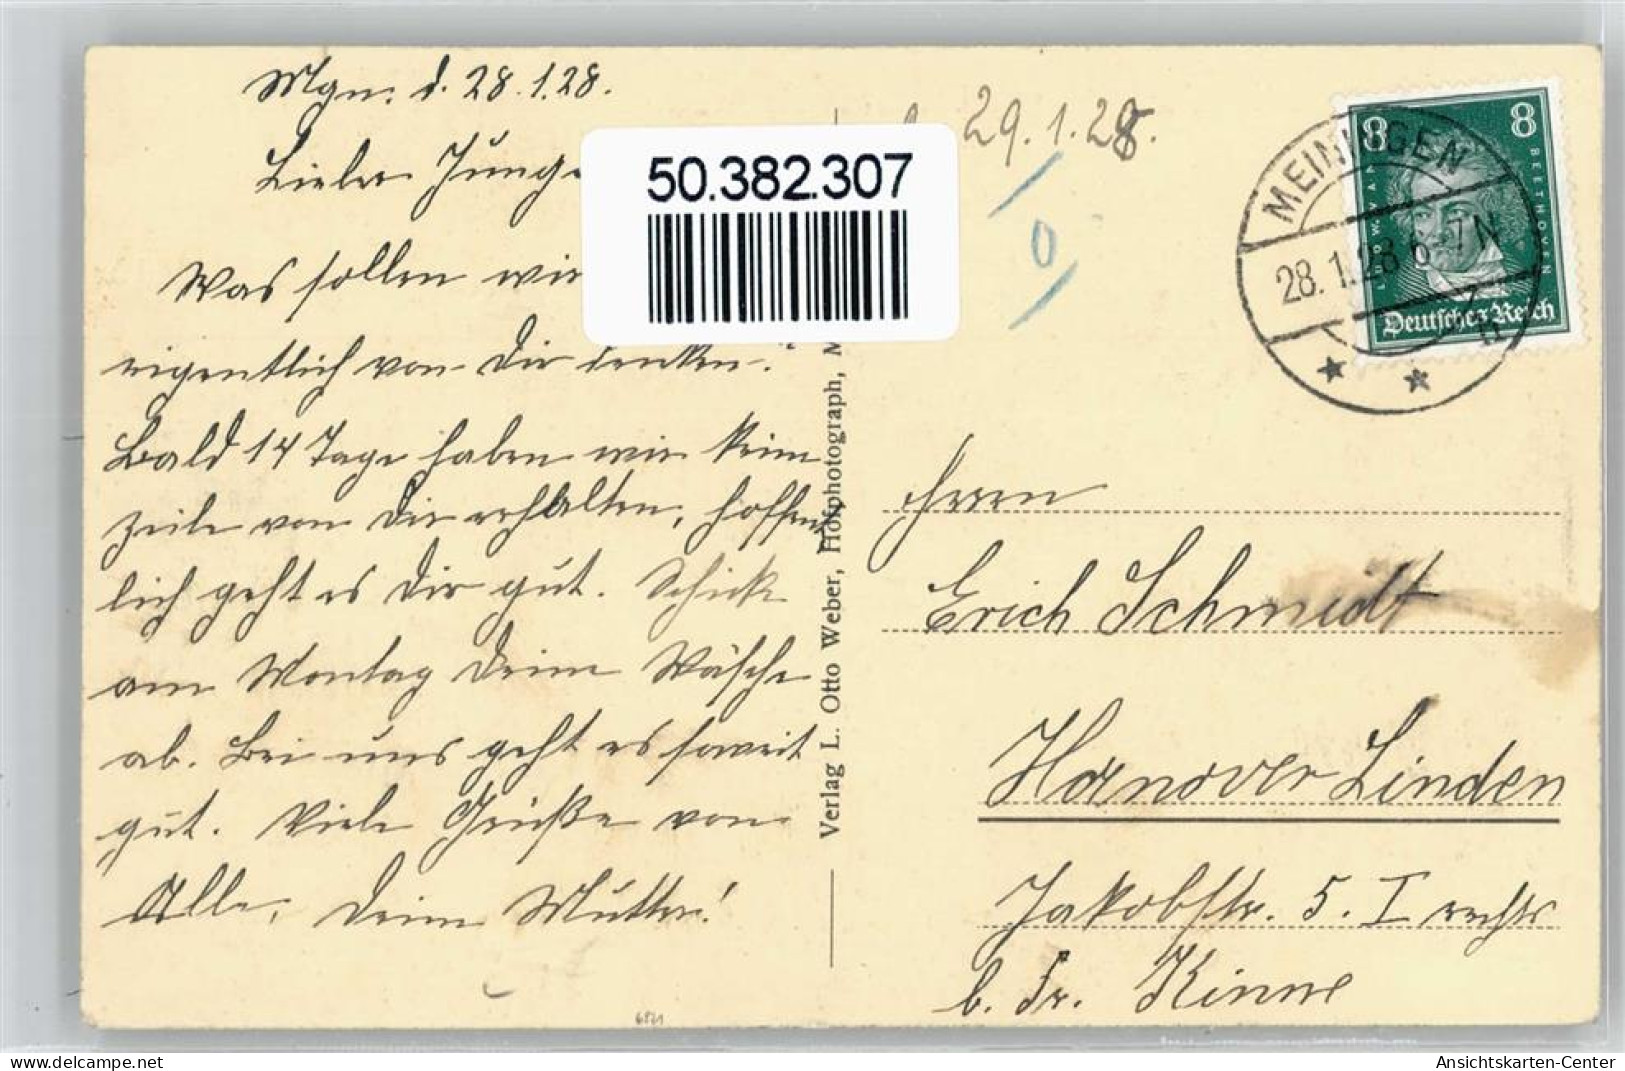 Mgn. d. 28.1.28.
Lieber Junge
Was sollen wir
eigentlich von Dir denken.
Bald 14 Tage haben wir keine
Zeile von Dir erhalten, hoffent
lich geht es Dir gut. Schick
am Montag Deine Wäsche
ab. Bei uns geht es soweit
gut. Viele Grüße von
Alle, Deine Mutter!
50.382.307
Verlag L. Otto Weber, Hofphotograph, M
29.1.28.
0
MEININGEN
28.1.28 6-7N
8 8
LUDW. VAN BEETHOVEN
Deutsches Reich
Herrn
Erich Schmidt
Hanover Linden
Jakobstr. 5. I rechts
b. Fr. Kinne
6821
delcampe.net
Ansichtskarten-Center